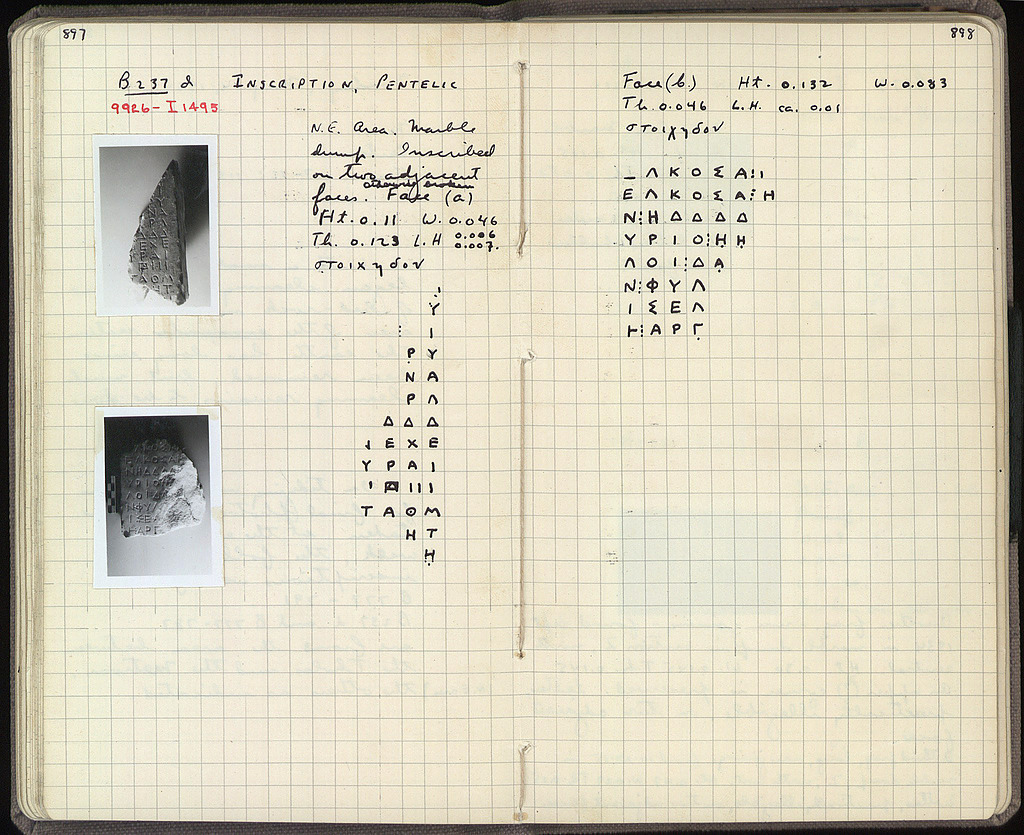 897
B 237 d INSCRIPTION, PENTELIC
9926 - I 1495
N.E. Area. Marble
dump. Inscribed
on two adjacent
otherwise broken
faces. Face (a)
Ht. 0.11 W. 0.046
Th. 0.123 L.H 0.006
0.007.
στοιχηδον
Υ
⋮ Ι
Ρ Υ
Ν Α
Ρ Λ
Δ Δ Δ
Ε Χ Ε
Υ Ρ Α Ι
Τ Α Θ Μ
Η Τ
Η
898
Face (b.) Ht. 0.132 W. 0.083
Th. 0.046 L.H. ca. 0.01
στοιχηδον
_ Λ Κ Ο Σ Α ⋮ Ι
Ε Λ Κ Ο Σ Α ⋮ Η
Ν ⋮ Η Δ Δ Δ Δ
Υ Ρ Ι Ο ⋮ Η Η
Λ Ο Ι ⋮ Δ Α
Ν ⋮ Φ Υ Λ
Ι Σ Ε Λ
Η ⋮ Α Ρ Γ